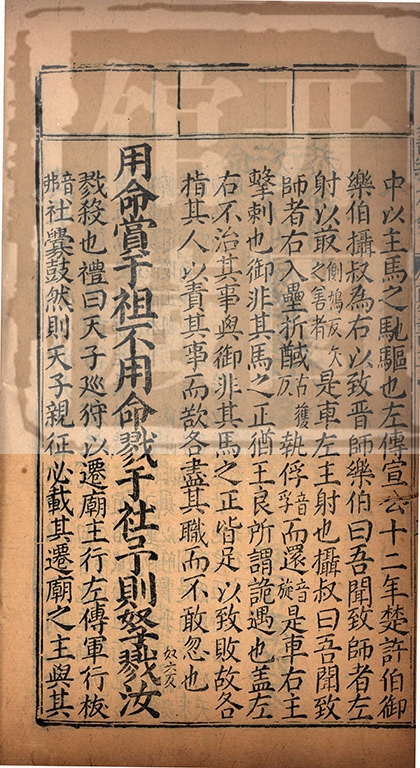 中以主馬之馳驅也左傳宣公十二年楚許伯御
樂伯攝叔為右以致晉師樂伯曰吾聞致師者左
射以菆側鳩反矢之善者是車左主射也攝叔曰吾聞致
師者右入壘折馘古獲反執俘音孚而還音旋是車右主
擊刺也御非其馬之正猶王良所謂詭遇也盖左
右不治其事與御非其馬之正皆足以致敗故各
指其人以責其事而欲各盡其職而不敢忽也
用命賞于祖不用命戮于社予則孥戮汝奴六反
戮殺也禮曰天子廵狩以遷廟主行左傳軍行祓
音弗社釁鼓然則天子親征必載其遷廟之主與其